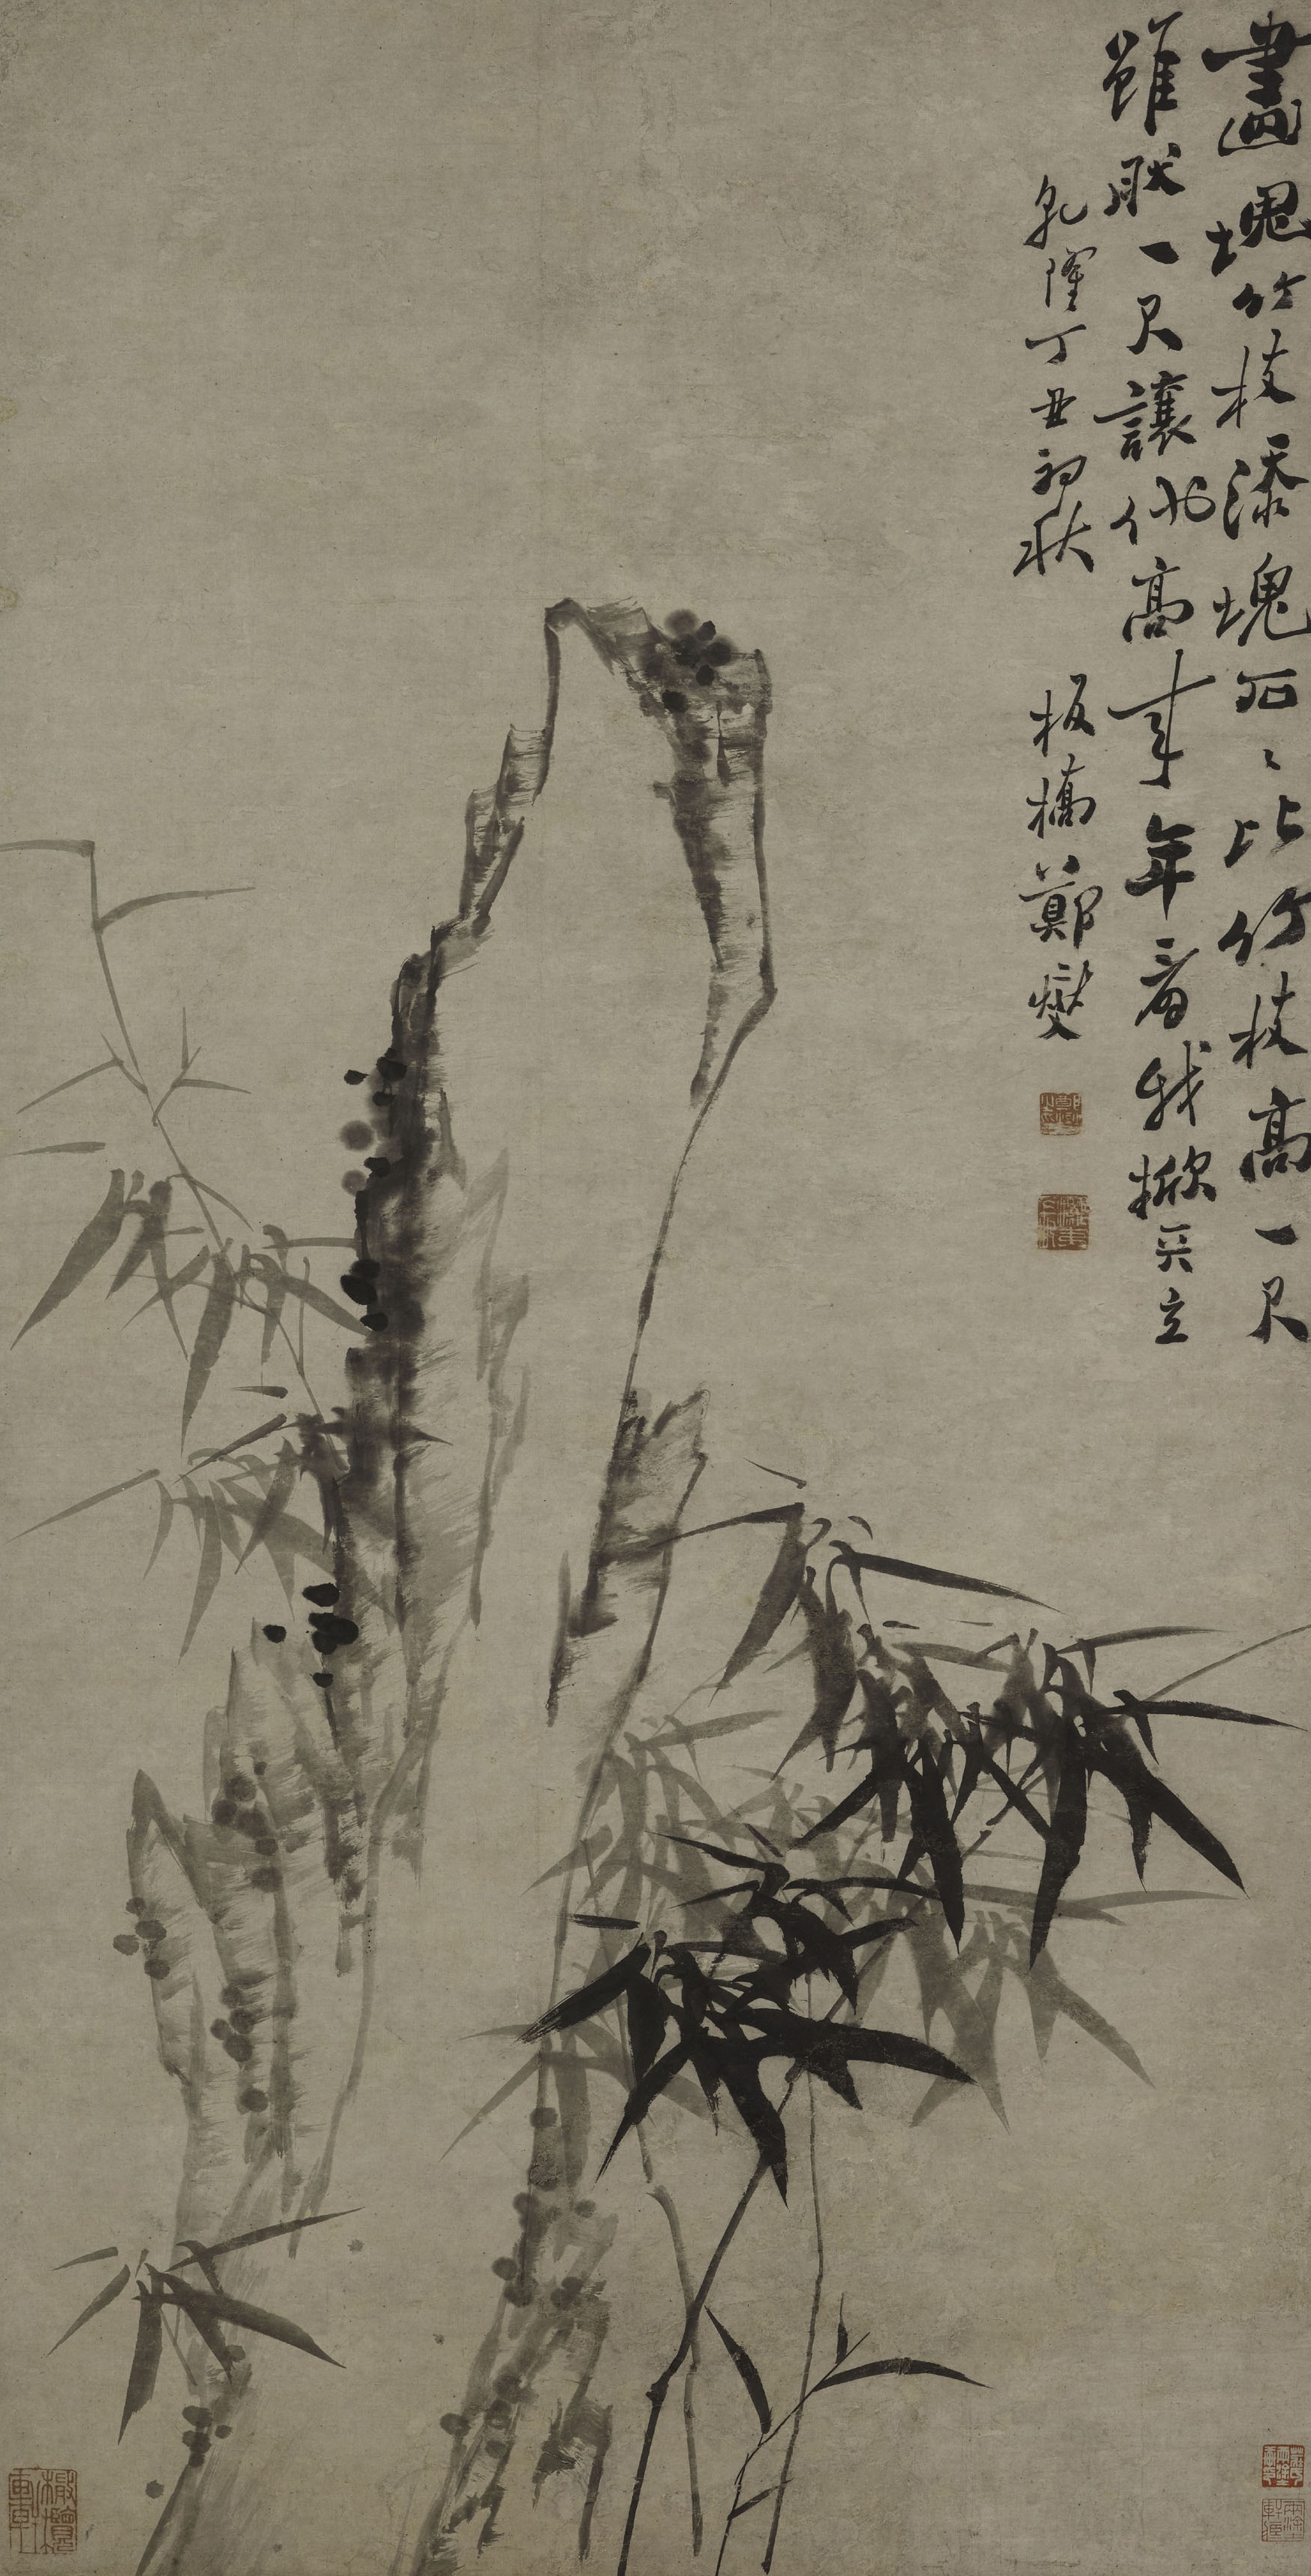 畫塊竹枝添塊石〻比竹枝高一尺
雖然一尺讓他高來年看我掀天立
乾隆丁丑初秋 板橋鄭燮